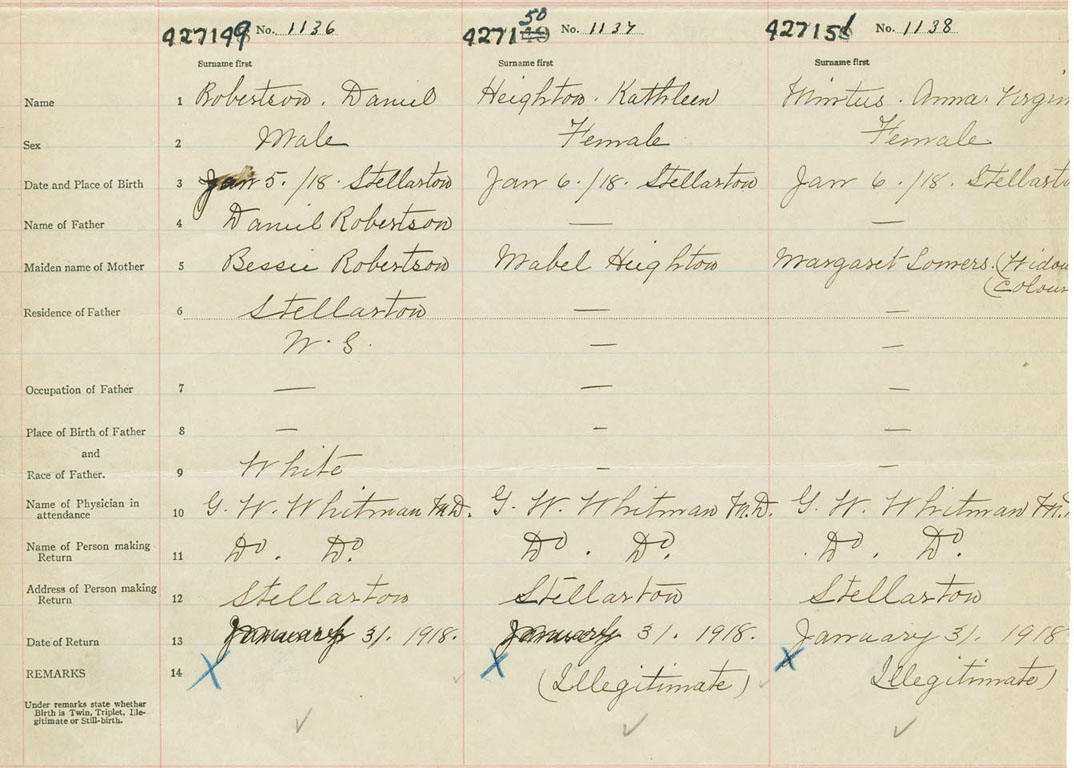 427149 No. 1136 427150 No. 1137 427151 No. 1138
Surname first Surname first Surname first
Name 1 Robertson. Daniel Heighton. Kathleen Mintus. Anna. Virgin
Sex 2 Male Female Female
Date and Place of Birth 3 Jan 5. /18. Stellarton Jan 6. /18. Stellarton Jan 6 /18. Stellarto
Name of Father 4 Daniel Robertson — —
Maiden name of Mother 5 Bessie Robertson Mabel Heighton Margaret Somers. (Widow
(Colour
Residence of Father 6 Stellarton — —
N. S. — —
Occupation of Father 7 — — —
Place of Birth of Father 8 — — —
and
Race of Father. 9 White — —
Name of Physician in
attendance 10 G. W. Whitman M.D. G. W. Whitman M.D. G. W. Whitman M.
Name of Person making
Return 11 Do. Do. Do. Do. Do. Do.
Address of Person making
Return 12 Stellarton Stellarton Stellarton
Date of Return 13 January 31. 1918. January 31. 1918. January 31. 1918
REMARKS 14 X X (Illegitimate) X Illegitimate)
Under remarks state whether
Birth is Twin, Triplet, Ille-
gitimate or Still-birth.